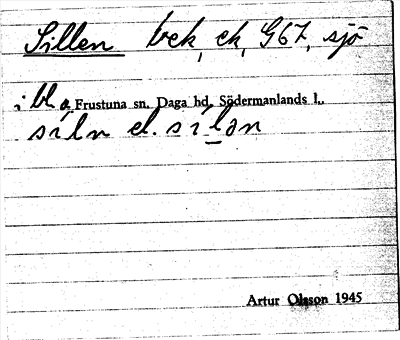 Sillen bek, ek, G67, sjö
i bl.a. Frustuna sn. Daga hd, Södermanlands l.,
síln el. sílən
Artur Olsson 1945